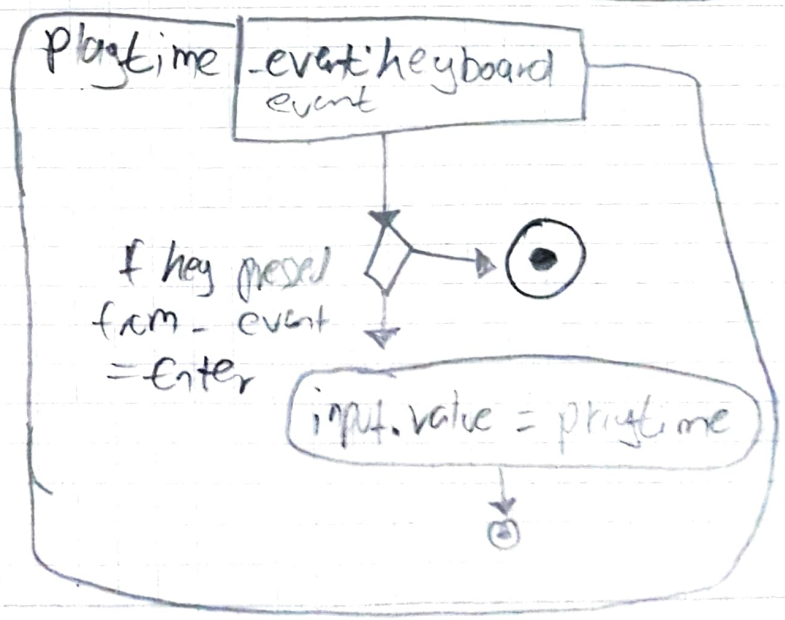 playtime
_event:keyboard
event
If key pressed
from _ event
= Enter
input.value = playtime